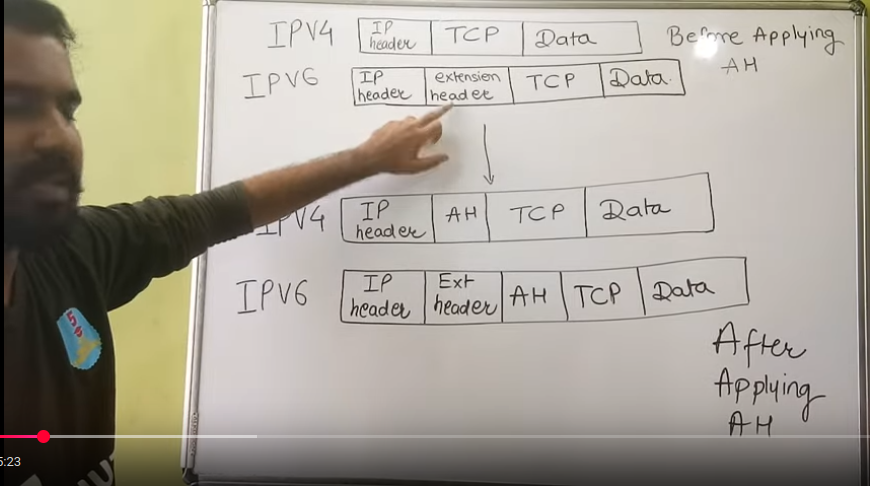 IPV4 IP header TCP Data Before Applying AH
IPV6 IP header extension header TCP Data
IPV4 IP header AH TCP Data
IPV6 IP header Ext header AH TCP Data
After
Applying
AH
5:23